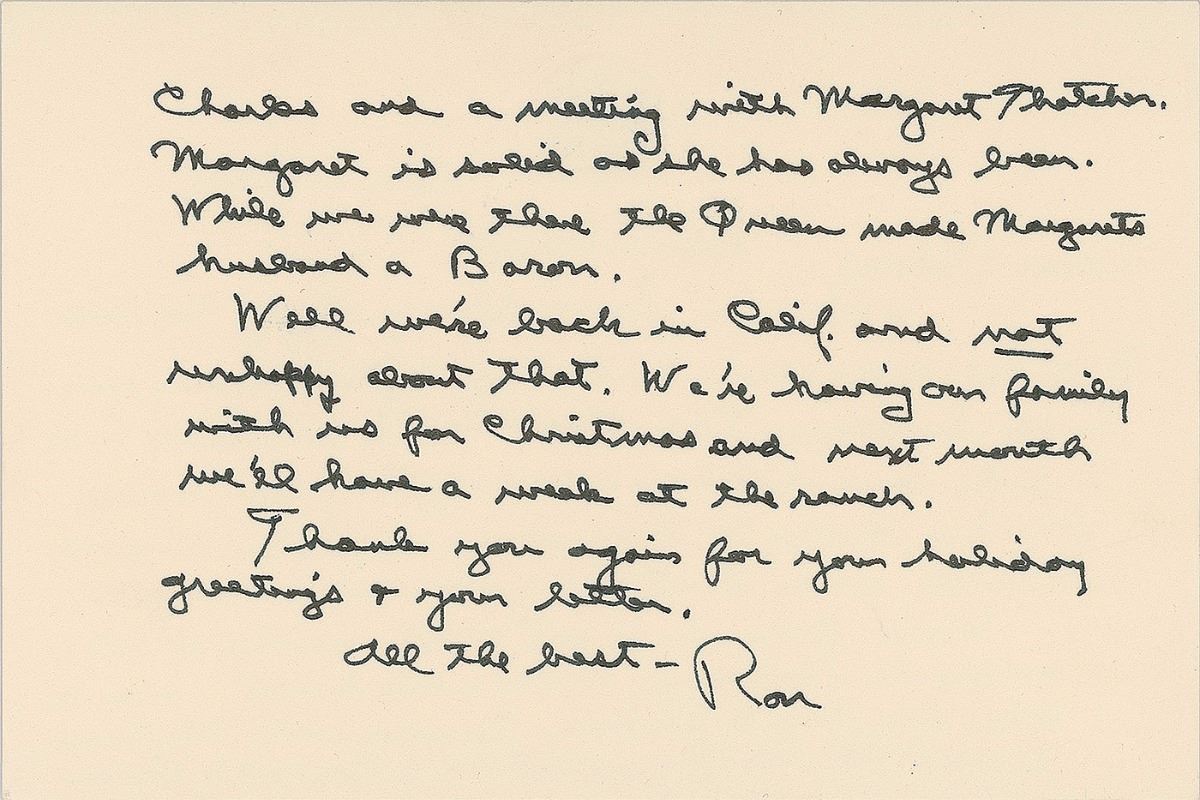 Charles and a meeting with Margaret Thatcher.
Margaret is solid as she has always been.
While we were there the Queen made Margarets
husband a Baron.
Well we're back in Calif. and not
unhappy about that. We're having our family
with us for Christmas and next month
we'll have a week at the ranch.
Thank you again for your holiday
greetings & your letter.
All the best – Ron